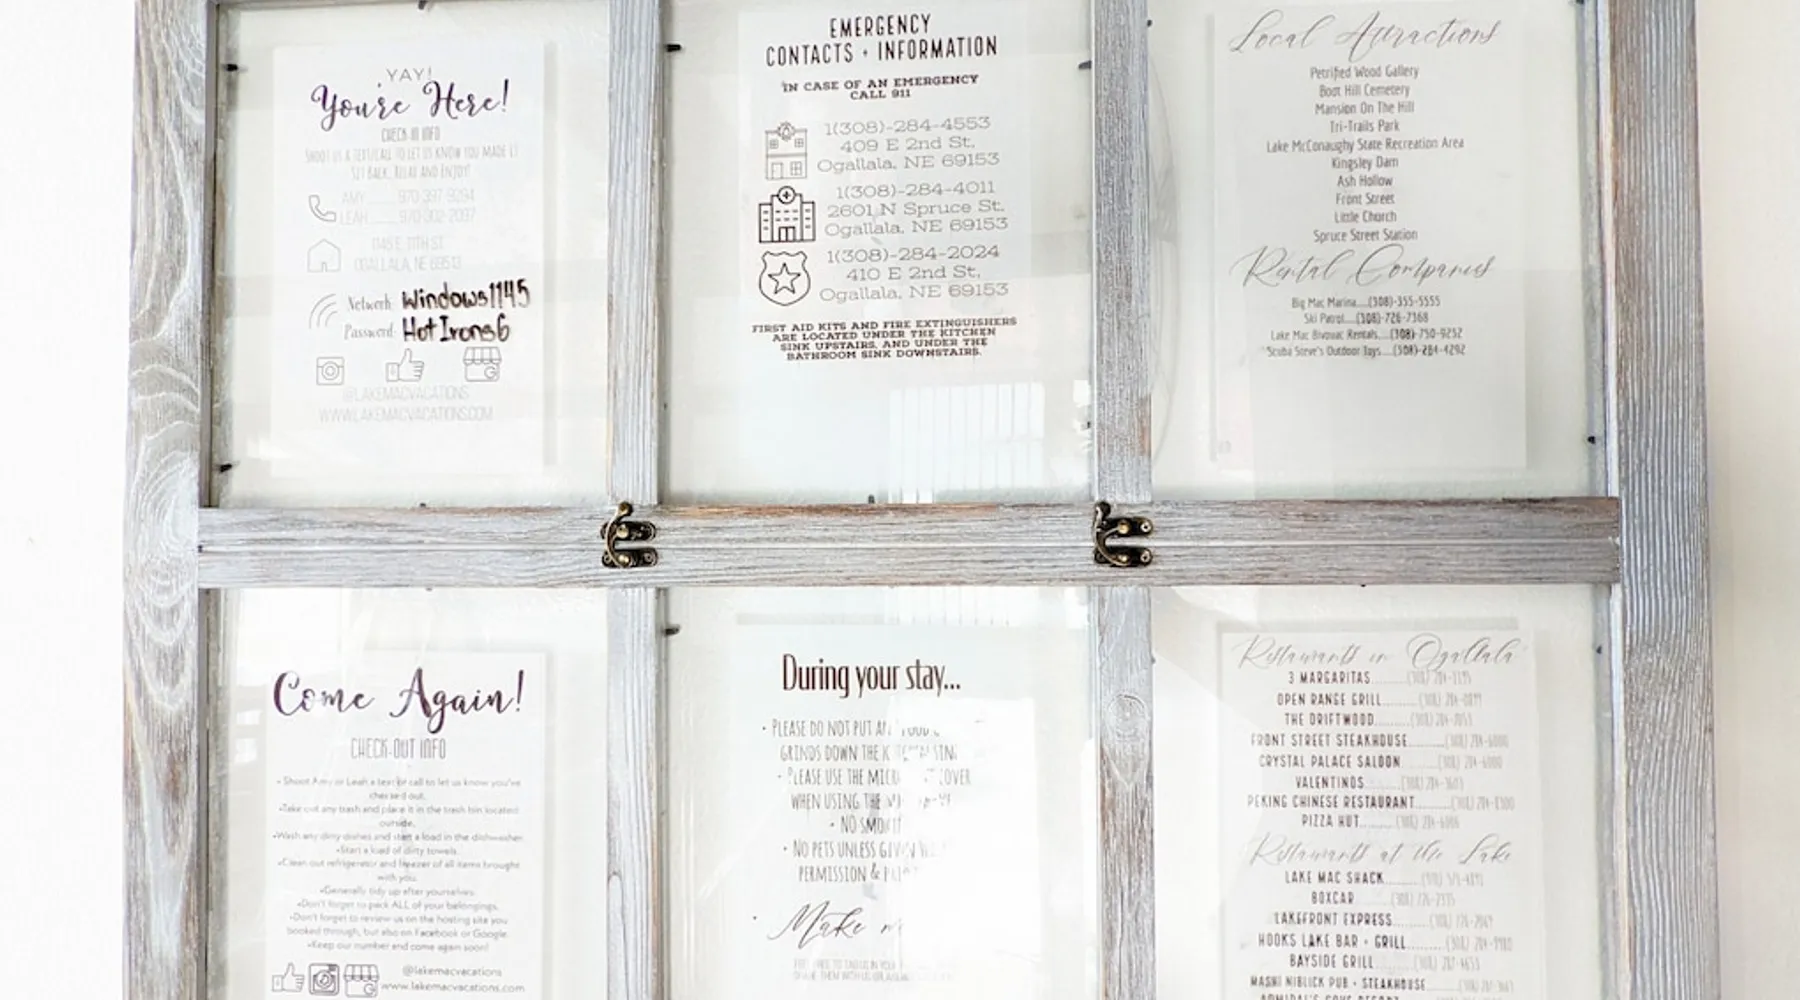 YAY!
You're Here!
CHECK-IN INFO
SHOOT US A TEXT/CALL TO LET US KNOW YOU MADE IT
SIT BACK, RELAX AND ENJOY!
AMY.........970-397-9294
LEAH.........970-302-7097
1145 E. 11TH ST.
OGALLALA, NE
Network: Windows1145
Password: HotIrons6
@LAKEMACVACATIONS
WWW.LAKEMACVACATIONS.COM
EMERGENCY
CONTACTS + INFORMATION
IN CASE OF AN EMERGENCY
CALL 911
1(308)-284-4553
409 E 2nd St,
Ogallala, NE 69153
1(308)-284-4011
2601 N Spruce St,
Ogallala, NE 69153
1(308)-284-2024
410 E 2nd St,
Ogallala, NE 69153
FIRST AID KITS AND FIRE EXTINGUISHERS
ARE LOCATED UNDER THE KITCHEN
SINK UPSTAIRS, AND UNDER THE
BATHROOM SINK DOWNSTAIRS.
Local Attractions
Petrified Wood Gallery
Boot Hill Cemetery
Mansion On The Hill
Tri-Trails Park
Lake McConaughy State Recreation Area
Kingsley Dam
Ash Hollow
Front Street
Little Church
Spruce Street Station
Rental Companies
Big Mac Marina....(308)-355-5555
Ski Patrol....(308)-726-7368
Lake Mac Bivouac Rentals....(308)-750-9252
Scuba Steve's Outdoor Toys....(308)-284-4292
Come Again!
CHECK-OUT INFO
• Shoot Amy or Leah a text or call to let us know you've
checked out.
•Take out any trash and place it in the trash bin located
outside.
•Wash any dirty dishes and start a load in the dishwasher.
•Start a load of dirty towels.
•Clean out refrigerator and freezer of all items brought
with you.
•Generally tidy up after yourselves.
•Don't forget to pack ALL of your belongings.
•Don't forget to review us on the hosting site you
booked through, but also on Facebook or Google.
•Keep our number and come again soon!
@lakemacvacations
www.lakemacvacations.com
During your stay...
• PLEASE DO NOT PUT ANY FOOD
GRINDS DOWN THE KITCHEN SINK
• PLEASE USE THE COVER
WHEN USING THE
• NO
• NO PETS UNLESS GIVEN
PERMISSION &
• Make
Restaurants in Ogallala
3 MARGARITAS
OPEN RANGE GRILL
THE DRIFTWOOD
FRONT STREET STEAKHOUSE
CRYSTAL PALACE SALOON
VALENTINOS
PEKING CHINESE RESTAURANT
PIZZA HUT
Restaurants at the Lake
LAKE MAC SHACK
BOXCAR
LAKEFRONT EXPRESS
HOOKS LAKE BAR + GRILL
BAYSIDE GRILL
NIBLICK PUB + STEAKHOUSE